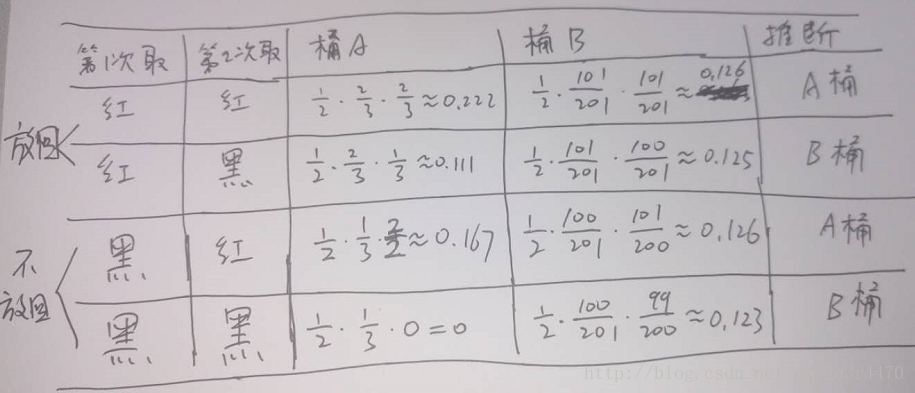 第1次取 第2次取 桶A 桶B 推断
放回 红 红 1/2 · 2/3 · 2/3 ≈ 0.222 1/2 · 101/201 · 101/201 ≈ 0.126 A桶
红 黑 1/2 · 2/3 · 1/3 ≈ 0.111 1/2 · 101/201 · 100/201 ≈ 0.125 B桶
不放回 黑 红 1/2 · 1/3 · 2/2 ≈ 0.167 1/2 · 100/201 · 101/200 ≈ 0.126 A桶
黑 黑 1/2 · 1/3 · 0 = 0 1/2 · 100/201 · 99/200 ≈ 0.123 B桶